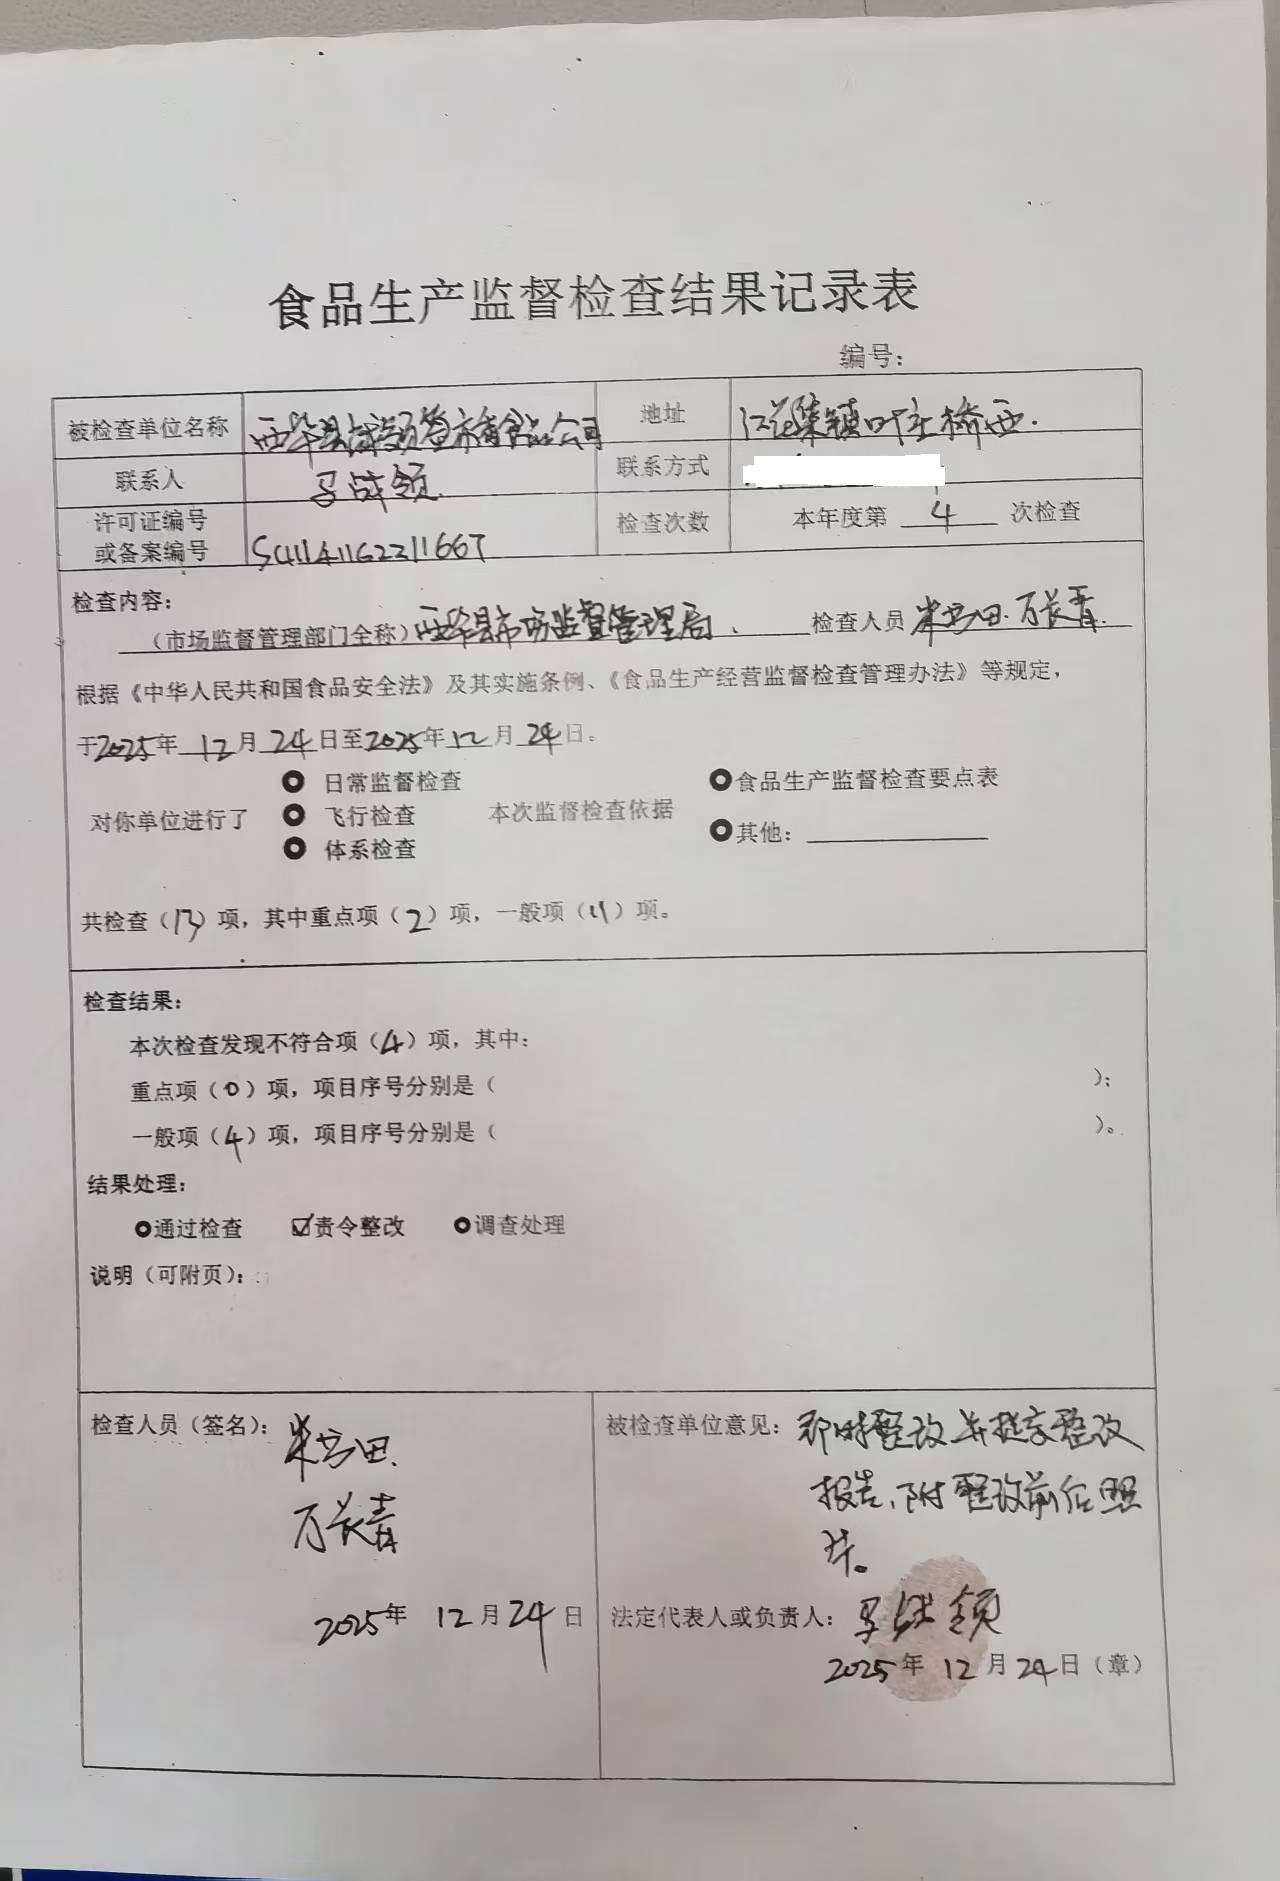 食品生产监督检查结果记录表
编号：
被检查单位名称 西华县战领管市香食品公司 地址 江河集镇叶庄桥西.
联系人 战领 联系方式
许可证编号
或备案编号 SC11141162211667 检查次数 本年度第 4 次检查
检查内容：
（市场监督管理部门全称）西华县市场监督管理局、 检查人员 米书田.万长青.
根据《中华人民共和国食品安全法》及其实施条例、《食品生产经营监督检查管理办法》等规定，
于2025年 12月 24日至2025年12月 24日。
日常监督检查 食品生产监督检查要点表
对你单位进行了 飞行检查 本次监督检查依据
体系检查 其他：
共检查（13）项，其中重点项（2）项，一般项（11）项。
检查结果：
本次检查发现不符合项（4）项，其中：
重点项（0）项，项目序号分别是（ ）；
一般项（4）项，项目序号分别是（ ）。
结果处理：
通过检查 ☑责令整改 调查处理
说明（可附页）：
检查人员（签名）： 米书田. 被检查单位意见：即时整改并提交整改
万长青 报告、附整改前后照
片。
法定代表人或负责人： 战领
2025年 12月24日 2025年 12月24日（章）